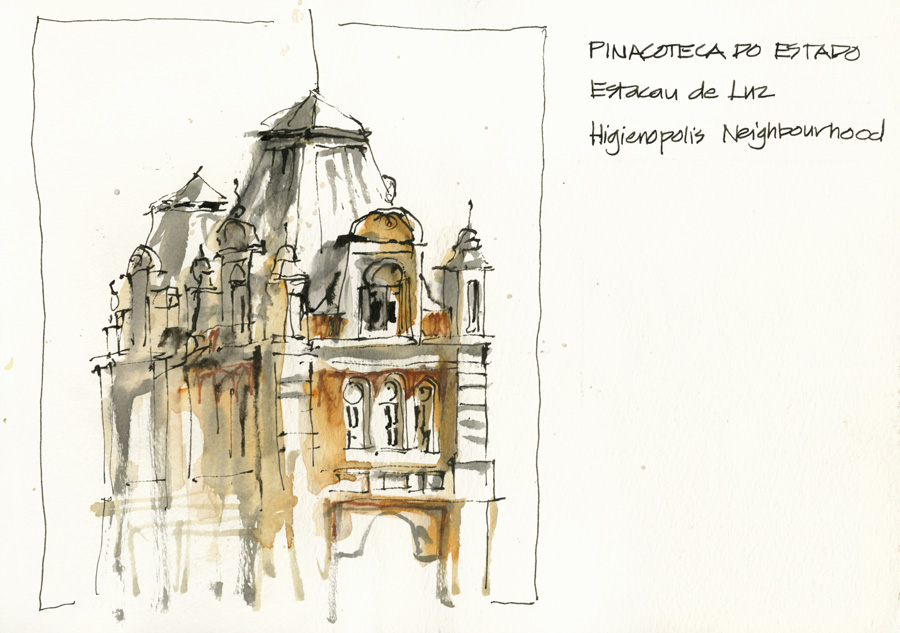 PINACOTECA DO ESTADO
Estacau de Luz
Higienopolis Neighbourhood